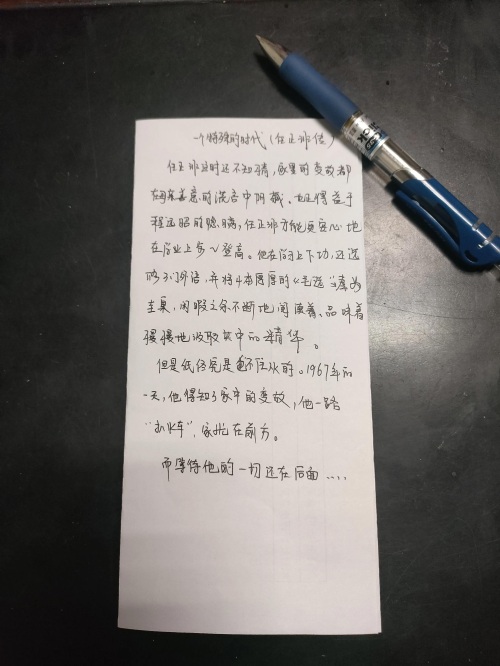 一个特殊的时代(任正非传)
任正非这时还不知情,家里的变故都
在母亲善意的谎言中阴藏。也正得益于
程远昭的隐瞒,任正非方能更安心地
在学业上步步登高。他在学习上下功,还选
修了门外语,并将4本厚厚的《毛选》奉为
圭臬,闲暇之余不断地阅读着、品味着
缓慢地汲取其中的精华。
但是纸终究是包不住火的。1967年的
一天,他得知了家中的变故,他一路
“扒火车”,家就在前方。
而等待他的一切还在后面....